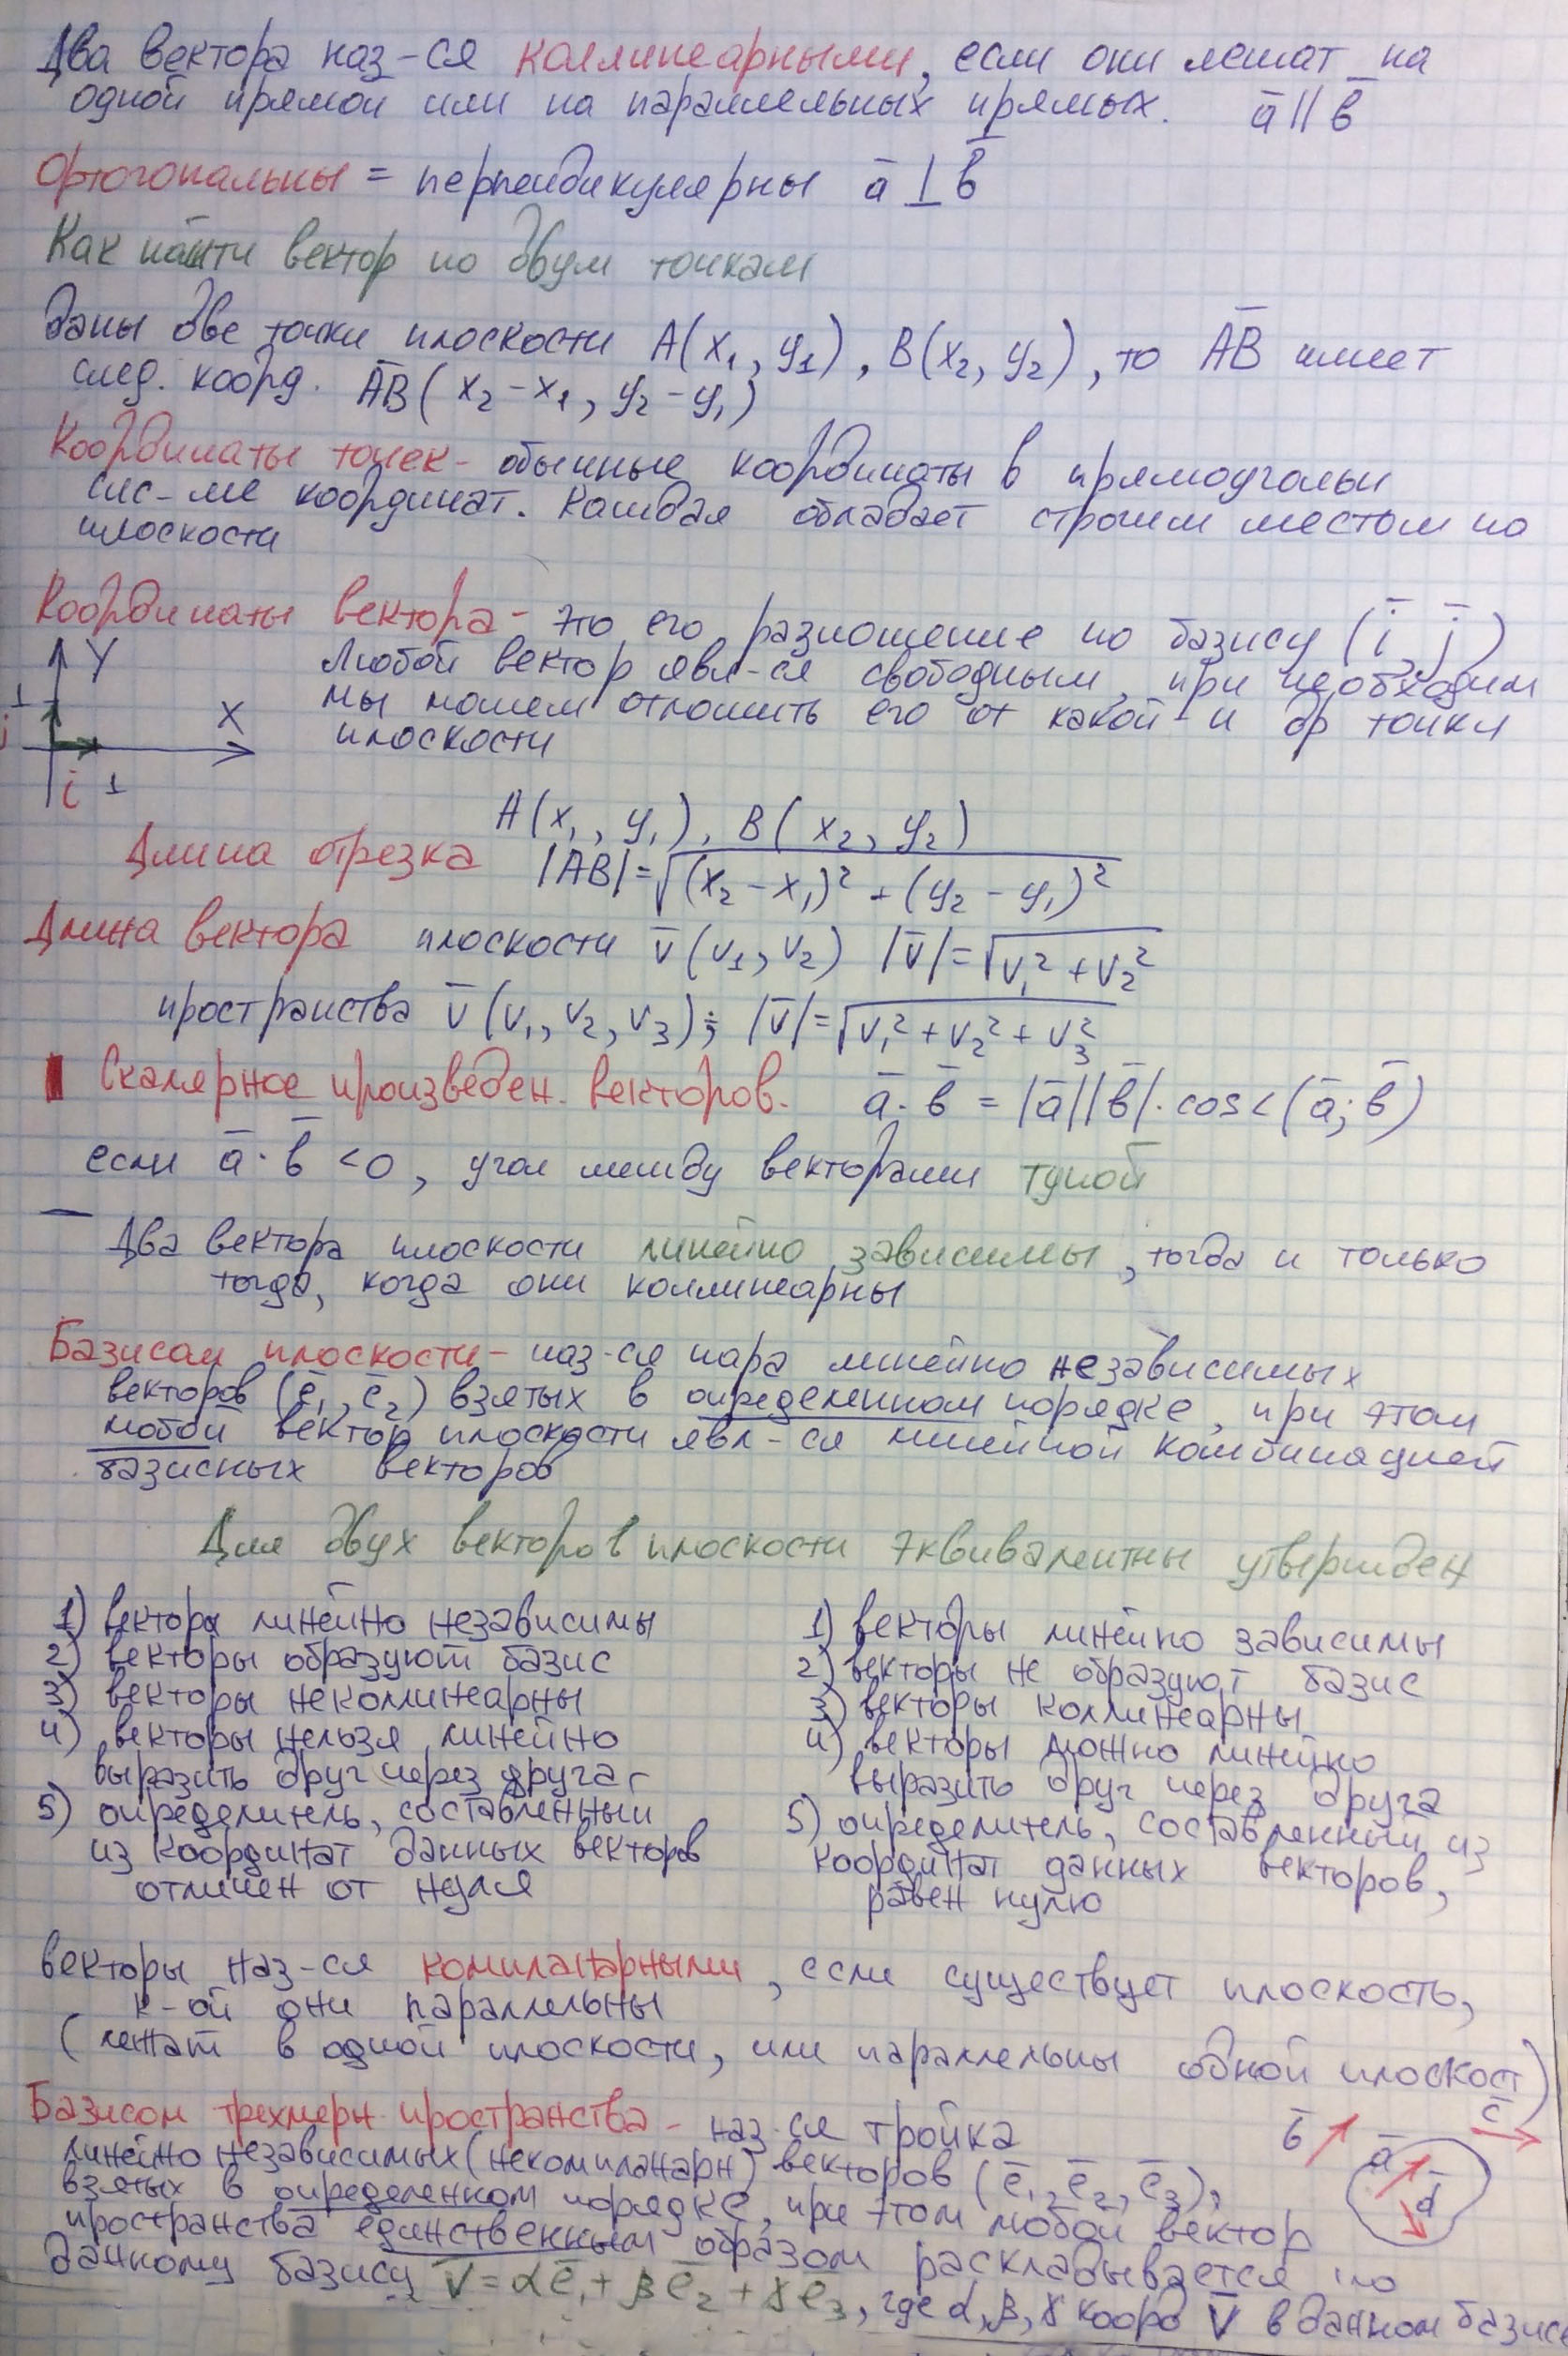 Два вектора наз-ся коллинеарными, если они лежат на
одной прямой или на параллельных прямых. a̅ || b̅
Ортогональны = перпендикулярны a̅ ⊥ b̅
Как найти вектор по двум точкам
даны две точки плоскости A(x₁, y₁), B(x₂, y₂), то A̅B̅ имеет
след. коорд. A̅B̅(x₂ - x₁, y₂ - y₁)
Координаты точек - обычные координаты в прямоугольн
сис-ме координат. Каждая обладает строгим местом на
плоскости
Координаты вектора - это его разложение по базису (i̅, j̅)
Любой вектор явл-ся свободным, при необходим
мы можем отложить его от какой-н др точки
плоскости
Y
1
X
j
i 1
A(x₁, y₁), B(x₂, y₂)
Длина отрезка |AB| = √(x₂ - x₁)² + (y₂ - y₁)²
Длина вектора плоскости v̅(v₁, v₂) |v̅| = √v₁² + v₂²
пространства v̅(v₁, v₂, v₃); |v̅| = √v₁² + v₂² + v₃²
Скалярное произведен. векторов. a̅ · b̅ = |a̅||b̅| · cos<(a̅; b̅)
если a̅ · b̅ < 0, угол между векторами тупой
Два вектора плоскости линейно зависимы, тогда и только
тогда, когда они коллинеарны
Базисом плоскости - наз-ся пара линейно независимых
векторов (e̅₁, e̅₂) взятых в определенном порядке, при этом
любой вектор плоскости явл-ся линейной комбинацией
базисных векторов
Для двух векторов плоскости эквивалентны утвержден
1) вектора линейно независимы
2) векторы образуют базис
3) векторы неколлинеарны
4) векторы нельзя линейно
выразить друг через друга
5) определитель, составленный
из координат данных векторов
отличен от нуля
1) векторы линейно зависимы
2) векторы не образуют базис
3) векторы коллинеарны
4) векторы можно линейно
выразить друг через друга
5) определитель, составленный из
координат данных векторов,
равен нулю
векторы наз-ся компланарными, если существует плоскость,
к-ой они параллельны
(лежат в одной плоскости, или параллельны одной плоскост)
Базисом трехмерн пространства - наз-ся тройка
линейно независимых (некомпланарн) векторов (e̅₁, e̅₂, e̅₃),
взятых в определенном порядке, при этом любой вектор
пространства единственным образом раскладывается по
данному базису v̅ = αe̅₁ + βe̅₂ + γe̅₃, где α, β, γ коорд v̅ в данном базисе
b̅
a̅
c̅
d̅